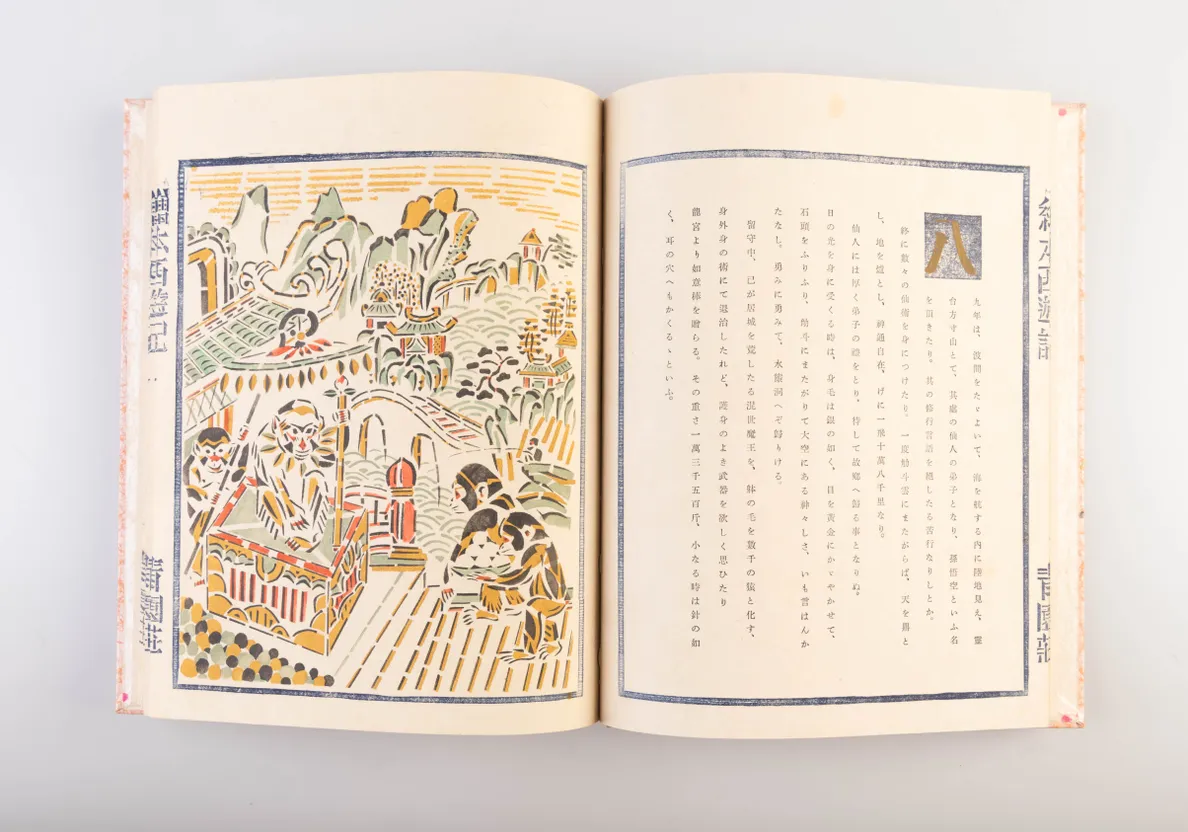 繪本西遊記
青園莊
八
九年は、波間をたゞよいて、海を航する内に陸地見え、靈
台方寸山とて、其處の仙人の弟子となり、孫悟空といふ名
を頂きたり。其の修行言語を絶したる苦行なりしとか。
終に數々の仙術を身につけたり。一度觔斗雲にまたがらば、天を鼎と
し、地を爐とし、神通自在、げに一飛十萬八千里なり。
仙人には厚く弟子の禮をとり、して故郷へ歸る事となりぬ。
日の光を身に受くる時は、身毛は銀の如く、目を黄金にかゞやかせて、
石頭をふりふり、觔斗にまたがりて大空にある神々しさ、いも言はんか
たなし。勇みに勇みて、水簾洞へぞ歸りける。
留守中、己が居城を荒したる混世魔王を、躰の毛を數千の猿と化す、
身外身の術にて退治したれど、護身のよき武器を欲しく思ひたり
龍宮より如意棒を贈らる。その重さ一萬三千五百斤、小なる時は針の如
く、耳の穴へもかくるゝといふ。
繪本西遊記
青園莊